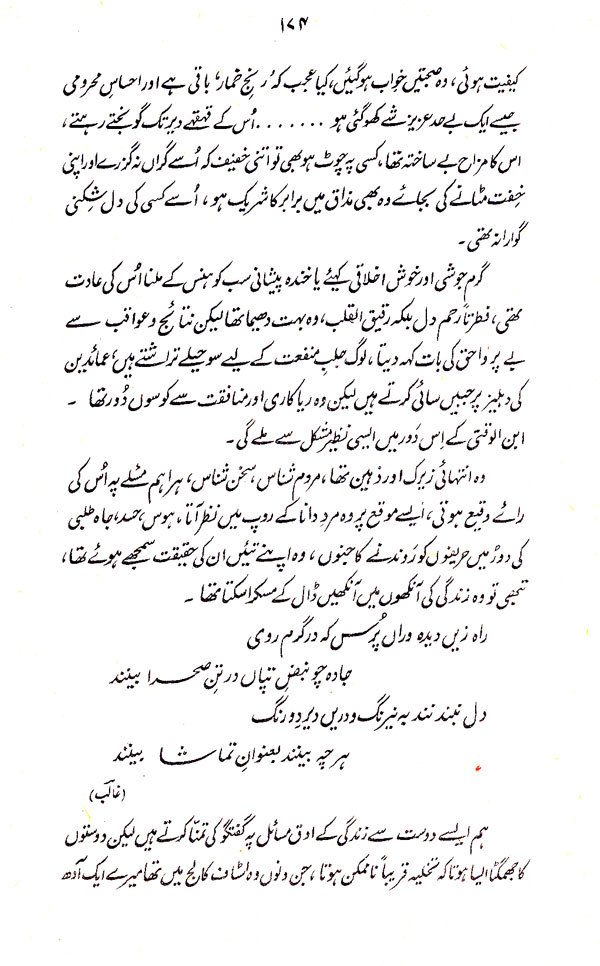 ۱۷۴
کیفیت ہوئی، وہ صحبتیں خواب ہوگئیں، کیا عجب کہ ’رنجِ خمار‘ باقی ہے اور احساسِ محرومی
جیسے ایک بے حد عزیز شے کھو گئی ہو ....... اُس کے قہقہے دیر تک گونجتے رہتے،
اس کا مزاح بے ساختہ تھا، کسی پہ چوٹ ہو بھی تو اتنی خفیف کہ اُسے گراں نہ گزرے اور اپنی
خفت مٹانے کی بجائے وہ بھی مذاق میں برابر کا شریک ہو، اُسے کسی کی دل شِکنی
گوارا نہ تھی۔
گرم جوشی اور خوش اخلاقی کہئے یا خندہ پیشانی سب کو ہنس کے ملنا اُس کی عادت
تھی، فطرتاً رحم دل بلکہ رقیق القلب، وہ بہت دھیما تھا لیکن نتائج و عواقب سے
بے پروا حق کی بات کہہ دیتا، لوگ جلبِ منفعت کے لیے سو حیلے تراشتے ہیں، عمائدین
کی دہلیز پر جبیں سائی کرتے ہیں لیکن وہ ریاکاری اور منافقت سے کوسوں دُور تھا۔
ابن الوقتی کے اِس دَور میں ایسی نظیر مشکل سے ملے گی۔
وہ انتہائی زیرک اور ذہین تھا، مردم شناس، سخن شناس، ہر اہم مسئلے پہ اُس کی
رائے وقیع ہوتی، ایسے موقع پر وہ مردِ دانا کے روپ میں نظر آتا، ہوس، حسد، جاہ طلبی
کی دوڑ میں حریفوں کو رَوندنے کا جنوں، وہ اپنے تئیں ان کی حقیقت سمجھے ہوئے تھا،
تبھی تو وہ زندگی کی آنکھوں میں آنکھیں ڈال کے مسکرا سکتا تھا۔
راہ زیں دیدہ وراں پُرس کہ در گرم روی
جادہ چو نبضِ تپاں در تنِ صحرا بینند
دل نبندند بہ نیرنگ و دریں دیرِ دو رنگ
ہرچہ بینند بعنوانِ تماشا بینند
(غالبؔ)
ہم ایسے دوست سے زندگی کے ادق مسائل پہ گفتگو کی تمنّا کرتے ہیں لیکن دوستوں
کا جھمگٹا ایسا ہوتا کہ تخلیہ قریباً ناممکن ہوتا، جن دنوں وہ سٹاف کالج میں تھا میرے ایک آدھ